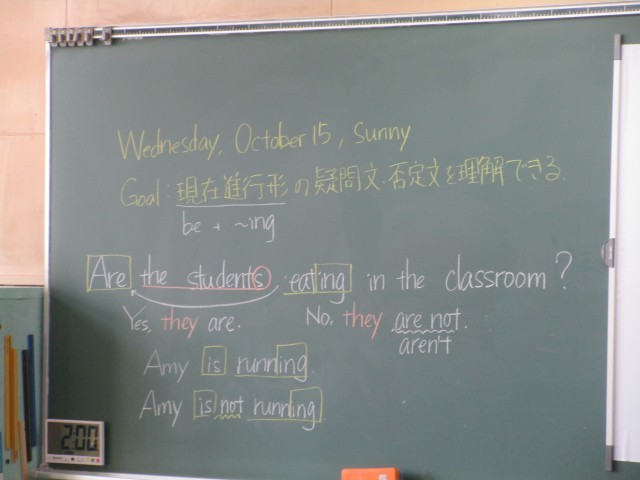 Wednesday, October 15, Sunny
Goal: 現在進行形の疑問文、否定文を理解できる.
be + ~ing
Are the students eating in the classroom?
Yes, they are. No, they are not.
aren't
Amy is running.
Amy is not running.
2:00